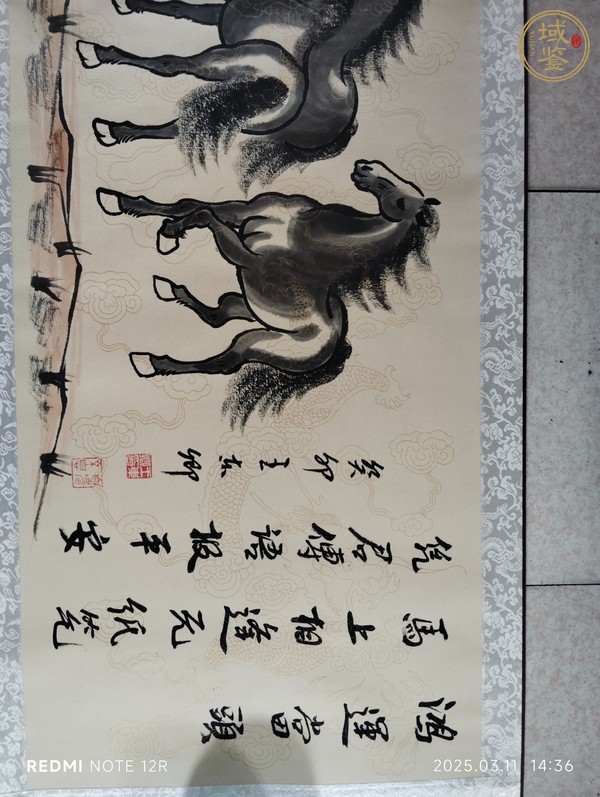 鸿運當頭
馬上相逢无纸笔
凭君傳語报平安
癸卯王东卿
域鉴
REDMI NOTE 12R
2025.03.11 14:36